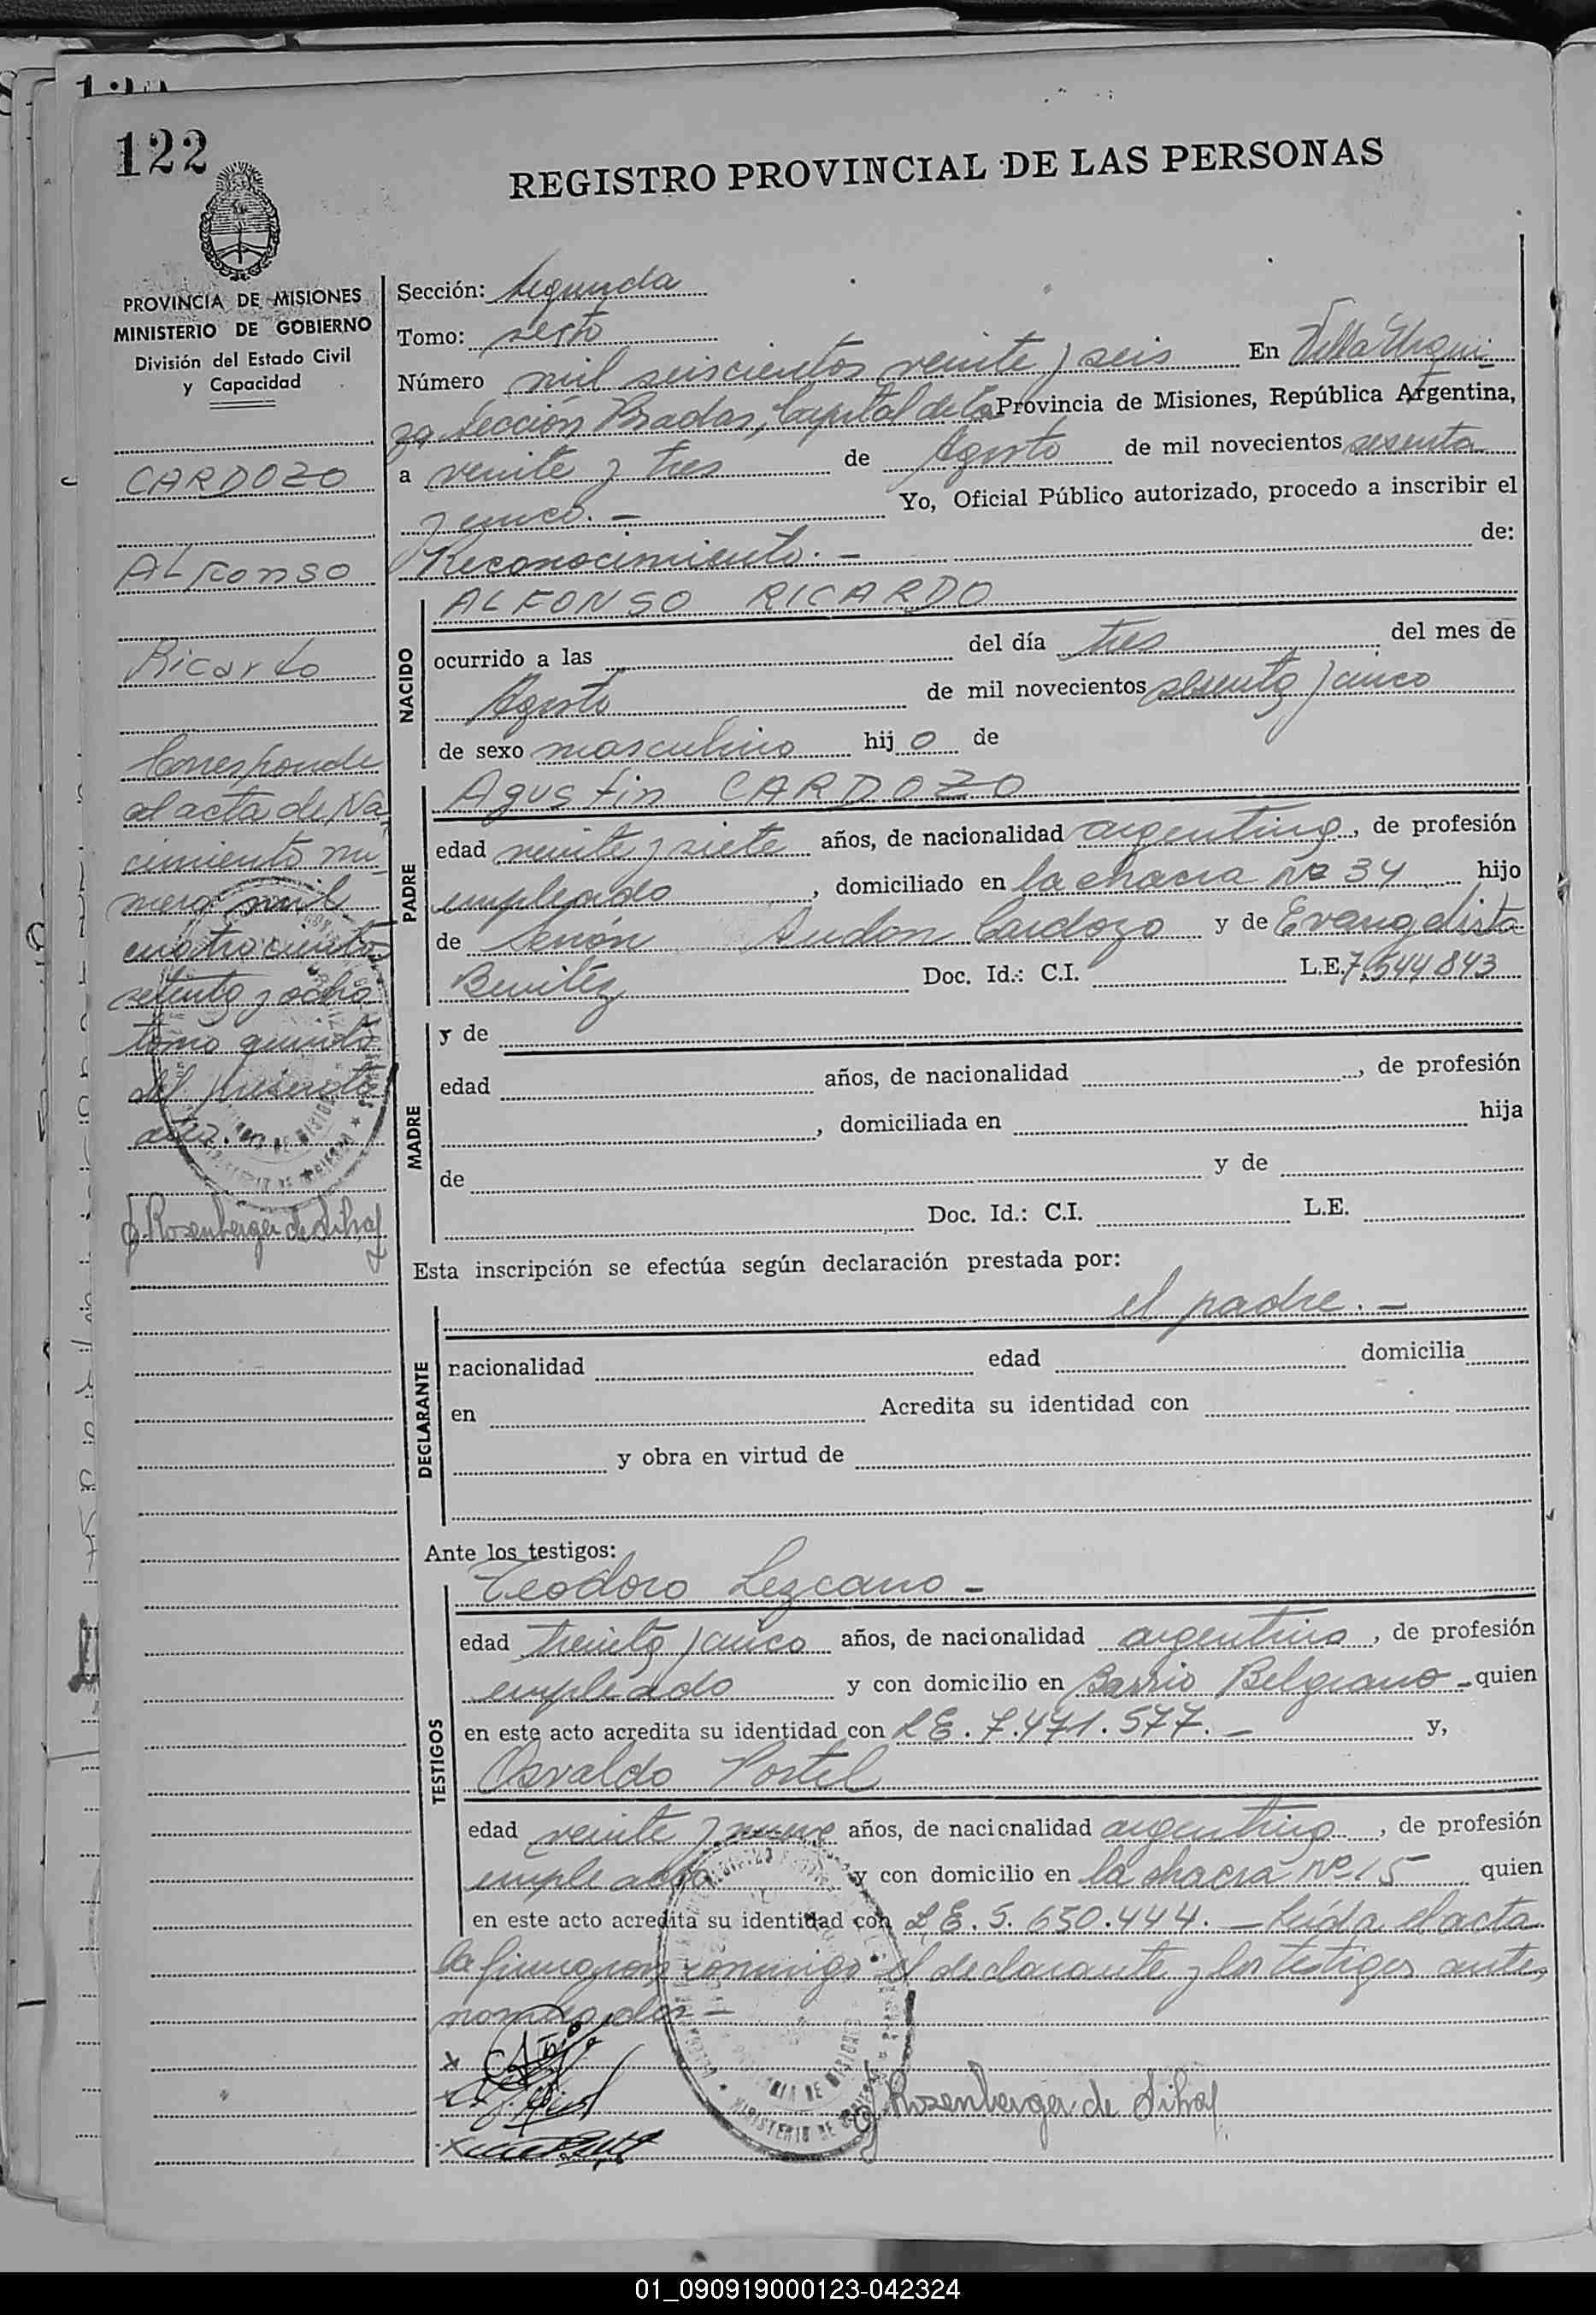 122
REGISTRO PROVINCIAL DE LAS PERSONAS
PROVINCIA DE MISIONES
MINISTERIO DE GOBIERNO
División del Estado Civil
y Capacidad
CARDOZO
Alfonso
Ricardo
Corresponde
al acta de Na-
cimiento nú-
mero mil
cuatrocientos
setenta y ocho
tomo quinto
del presente
año.-
Rosenberger de
Sección: Segunda
Tomo: sexto
Número mil seiscientos veinte y seis En Villa Urqui-
za Sección Posadas, Capital de la Provincia de Misiones, República Argentina,
a veinte y tres de Agosto de mil novecientos sesenta
y cinco.- Yo, Oficial Público autorizado, procedo a inscribir el
Reconocimiento.- de:
NACIDO
ALFONSO RICARDO
ocurrido a las del día tres del mes de
Agosto de mil novecientos sesenta y cinco
de sexo masculino hijo de
PADRE
Agustin CARDOZO
edad veinte y siete años, de nacionalidad argentino, de profesión
empleado, domiciliado en la chacra Nº 34 hijo
de Cardozo y de Evangelista
Benitéz Doc. Id.: C.I. L.E. 7.544843
MADRE
y de
edad años, de nacionalidad , de profesión
, domiciliada en hija
de y de
Doc. Id.: C.I. L.E.
Esta inscripción se efectúa según declaración prestada por:
el padre.-
DECLARANTE
nacionalidad edad domicilia
en Acredita su identidad con
y obra en virtud de
Ante los testigos:
TESTIGOS
Teodoro Lezcano -
edad treinta y cinco años, de nacionalidad argentino, de profesión
empleado y con domicilio en Barrio Belgrano - quien
en este acto acredita su identidad con L.E. 7.471.577.- y,
Osvaldo Portel
edad veinte y nueve años, de nacionalidad argentino, de profesión
empleado y con domicilio en la chacra Nº 15 quien
en este acto acredita su identidad con L.E. 5.650.444.- Leída el acta
la firmaron conmigo el declarante y los testigos ante,
nombrados -
Rosenberger de
01_090919000123-042324